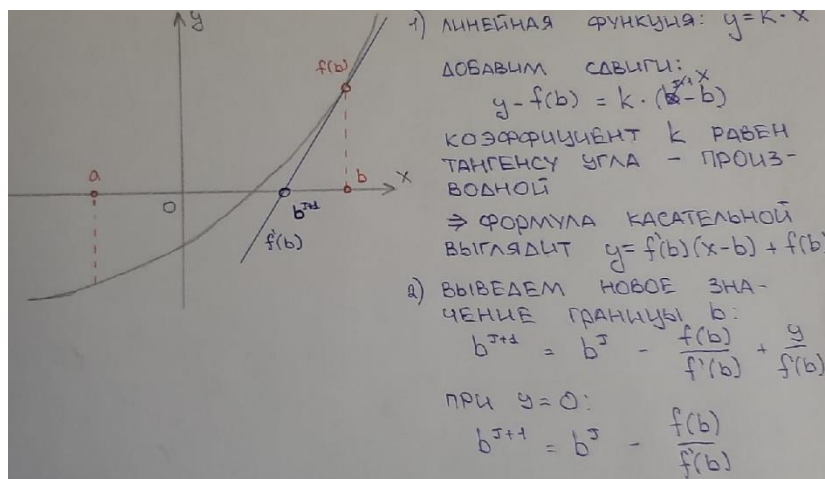 y
f(b)
a
b
x
O
b^{J+1}
f'(b)
1) ЛИНЕЙНАЯ ФУНКЦИЯ: y=k·x
ДОБАВИМ СДВИГИ:
y-f(b) = k·(x-b)
КОЭФФИЦИЕНТ k РАВЕН
ТАНГЕНСУ УГЛА – ПРОИЗ-
ВОДНОЙ
⇒ ФОРМУЛА КАСАТЕЛЬНОЙ
ВЫГЛЯДИТ y=f'(b)(x-b)+f(b)
2) ВЫВЕДЕМ НОВОЕ ЗНА-
ЧЕНИЕ ГРАНИЦЫ b:
b^{J+1} = b^J - \frac{f(b)}{f'(b)} + \frac{y}{f'(b)}
ПРИ y=0:
b^{J+1} = b^J - \frac{f(b)}{f'(b)}